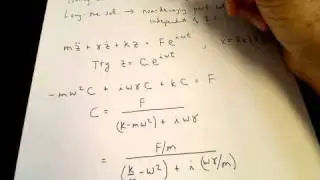 Long time sol → non-decaying part
independent of I.C.
m z̈ + γ ż + k z = F e^{iωt} , x = Re{
Try z = C e^{iωt}
-mω² C + iωγ C + k C = F
C = F / ((k-mω²) + iωγ)
= F/m / ((k/m - ω²) + i (ωγ/m))